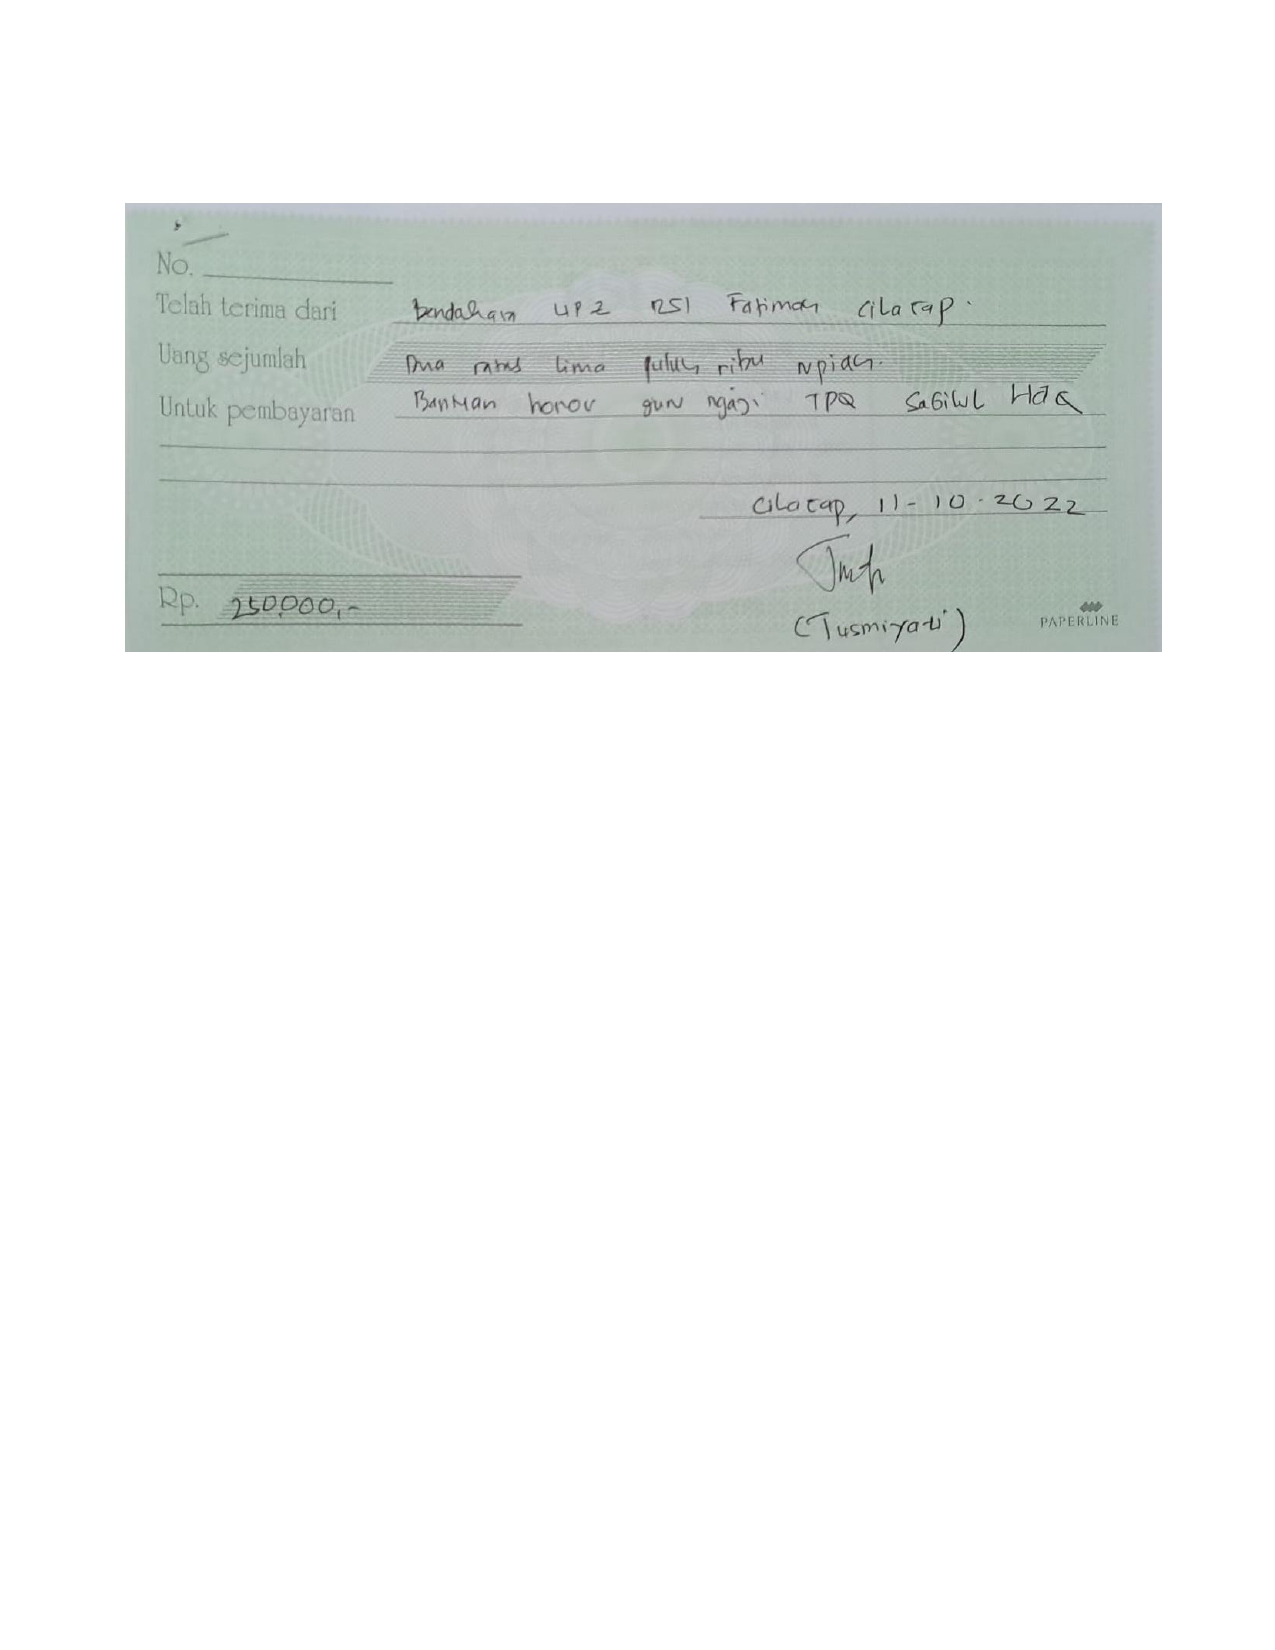 No.
Telah terima dari Bendahara UPZ RSI Fatimah Cilacap.
Uang sejumlah Dua ratus lima puluh ribu rupiah.
Untuk pembayaran Bantuan honor guru ngaji TPQ Sabilul Haq
Cilacap, 11-10-2022
Rp. 250.000,-
(Tusmiyati)
PAPERLINE